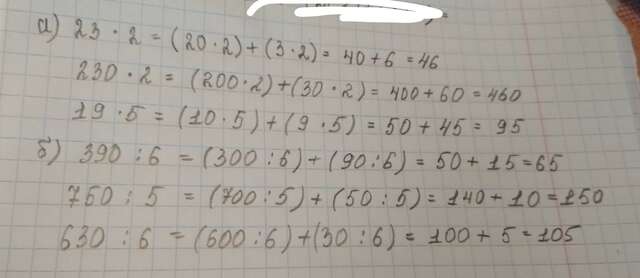 а) 23 · 2 = (20 · 2) + (3 · 2) = 40 + 6 = 46
230 · 2 = (200 · 2) + (30 · 2) = 400 + 60 = 460
19 · 5 = (10 · 5) + (9 · 5) = 50 + 45 = 95
б) 390 : 6 = (300 : 6) + (90 : 6) = 50 + 15 = 65
750 : 5 = (700 : 5) + (50 : 5) = 140 + 10 = 150
630 : 6 = (600 : 6) + (30 : 6) = 100 + 5 = 105